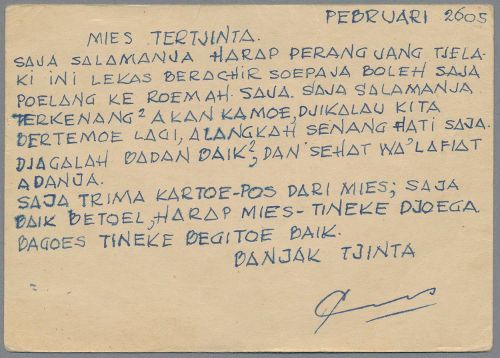 PEBRUARI 2605
MIES TERTJINTA.
SAJA SALAMANJA HARAP PERANG JANG TJELA-
KI INI LEKAS BERACHIR SOEPAJA BOLEH SAJA
POELANG KE ROEMAH SAJA. SAJA SALAMANJA
TERKENANG² AKAN KAMOE, DJIKALAU KITA
BERTEMOE LAGI, ALANGKAH SENANG HATI SAJA.
DJAGALAH BADAN BAIK², DAN SEHAT WA'LAFIAT
ADANJA.
SAJA TRIMA KARTOE-POS DARI MIES; SAJA
BAIK BETOEL, HARAP MIES-TINEKE DJOEGA.
BAGOES TINEKE BEGITOE BAIK.
BANJAK TJINTA